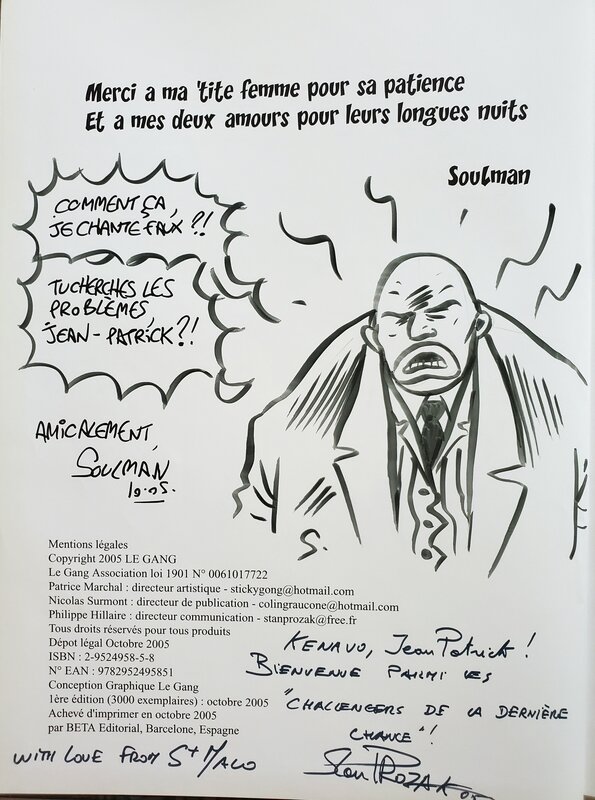 Merci a ma 'tite femme pour sa patience
Et a mes deux amours pour leurs longues nuits
Soulman
COMMENT ÇA,
JE CHANTE FAUX ?!
TU CHERCHES LES
PROBLÈMES,
JEAN-PATRICK ?!
AMICALEMENT,
SOULMAN
10.05.
S.
Mentions légales
Copyright 2005 LE GANG
Le Gang Association loi 1901 N° 0061017722
Patrice Marchal : directeur artistique - stickygong@hotmail.com
Nicolas Surmont : directeur de publication - colingraucone@hotmail.com
Philippe Hillaire : directeur communication - stanprozak@free.fr
Tous droits réservés pour tous produits
Dépot légal Octobre 2005
ISBN : 2-9524958-5-8
N° EAN : 9782952495851
Conception Graphique Le Gang
1ère édition (3000 exemplaires) : octobre 2005
Achevé d'imprimer en octobre 2005
par BETA Editorial, Barcelone, Espagne
KENAVO, Jean Patrick !
BIENVENUE PARMI LES
"CHALLENGERS DE LA DERNIÈRE
CHANCE" !
WITH LOVE FROM St MALO
Stan PROZAK 05